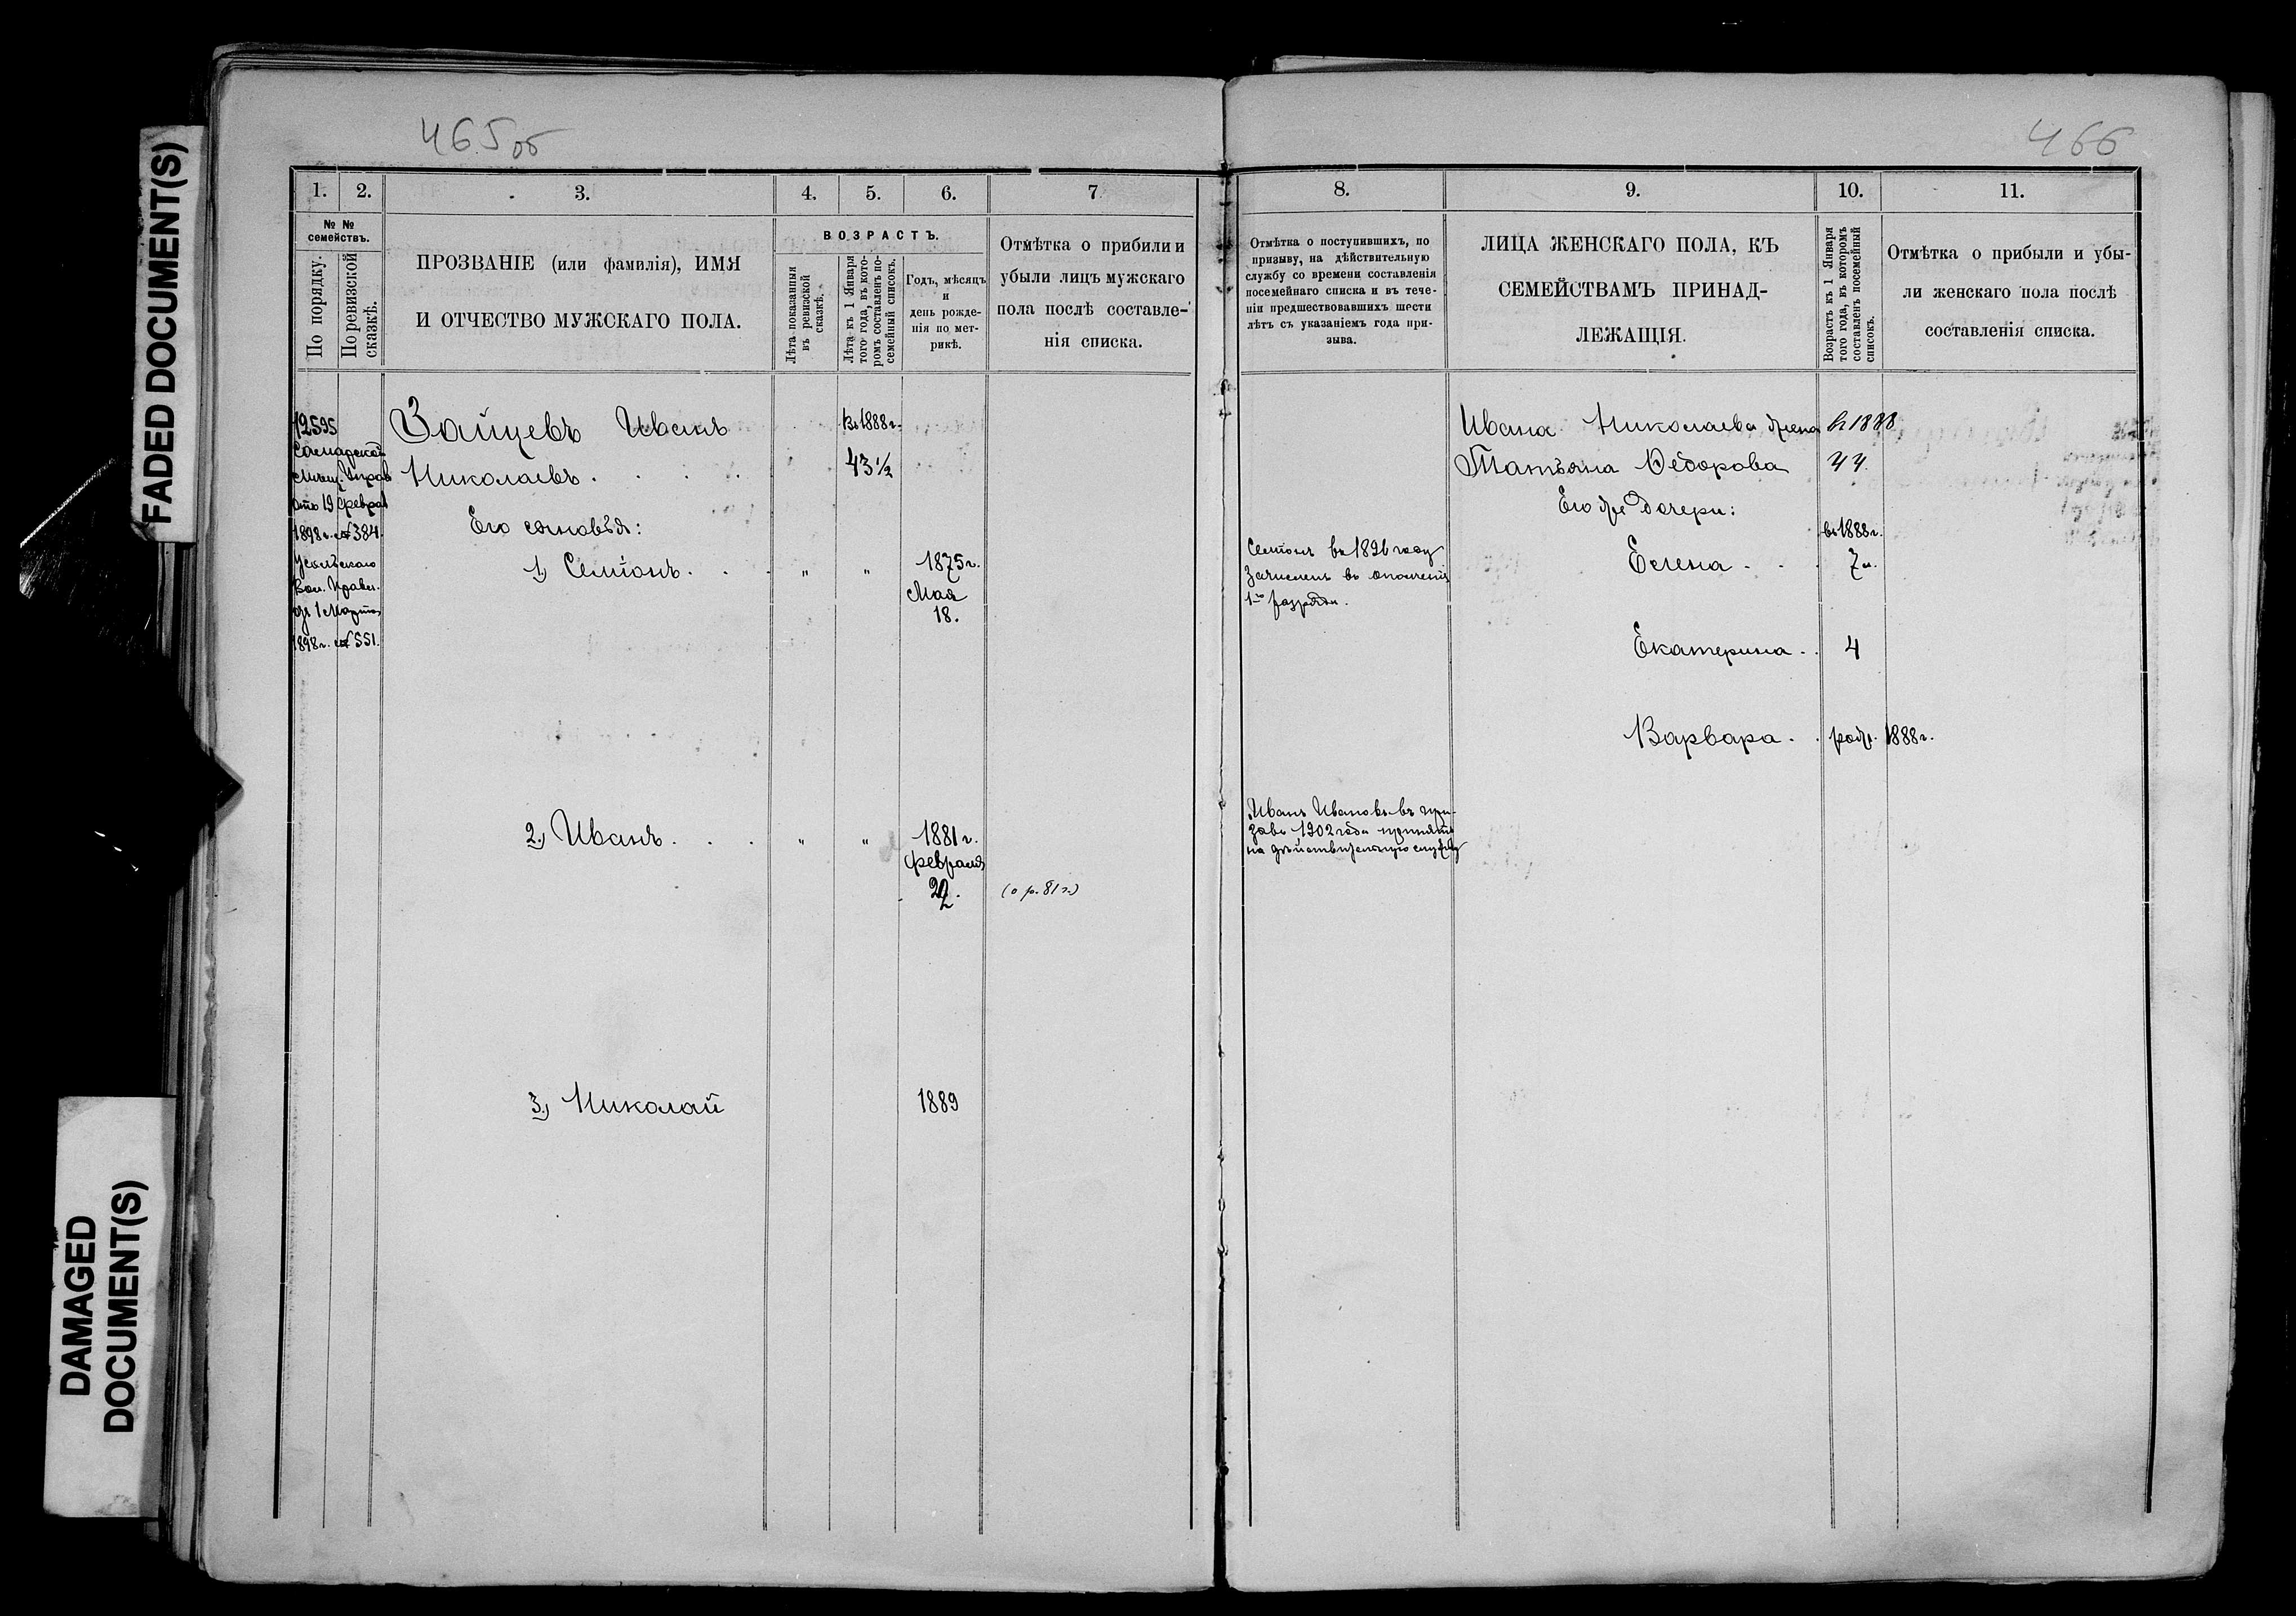 FADED DOCUMENT(S)
DAMAGED
DOCUMENT(S)
465об
1. 2. 3. 4. 5. 6. 7.
№ №
семействъ.
По порядку.
По ревизской
сказкѣ.
ПРОЗВАНІЕ (или фамилія), ИМЯ
И ОТЧЕСТВО МУЖСКАГО ПОЛА.
ВОЗРАСТЪ.
Лѣта показанныя
въ ревизской
сказкѣ.
Лѣта къ 1 Января
того года, въ кото-
ромъ составленъ по-
семейный списокъ.
Годъ, мѣсяцъ
и
день рожде-
нія по мет-
рикѣ.
Отмѣтка о прибили и
убыли лицъ мужскаго
пола послѣ составле-
нія списка.
12595
Самарской
Мѣщ. Управ
отъ 19 Феврал
1898 г. № 384.
Усольскаго
Вол. Правл.
1 Марта
1898 г. № 551.
Зайцевъ Иванъ
Николаевъ . . . .
Въ 1888 г.
43 1/2
Его сыновья:
1.) Семіонъ. . . " " 1875 г.
Мая
18.
2.) Иванъ. . . " " 1881 г.
Февраля
22.
(о р. 81 г.)
3.) Николай 1889
466
8. 9. 10. 11.
Отмѣтка о поступившихъ, по
призыву, на дѣйствительную
службу со времени составленія
посемейнаго списка и въ тече-
ніи предшествовавшихъ шести
лѣтъ съ указаніемъ года при-
зыва.
ЛИЦА ЖЕНСКАГО ПОЛА, КЪ
СЕМЕЙСТВАМЪ ПРИНАД-
ЛЕЖАЩІЯ.
Возрастъ къ 1 Января
того года, въ которомъ
составленъ посемейный
списокъ.
Отмѣтка о прибыли и убы-
ли женскаго пола послѣ
составленія списка.
Ивана Николаева жена в 1888
Татьяна Ѳедорова 44.
Его же дочери:
въ 1888 г.
Елена . . . 7 л.
Екатерина . . 4
Варвара . . родл. 1888 г.
Семіонъ въ 1896 году
зачисленъ въ ополченіе
1го разряда.
Иванъ Ивановъ въ при-
зывъ 1902 года принятъ
на дѣйствительную службу